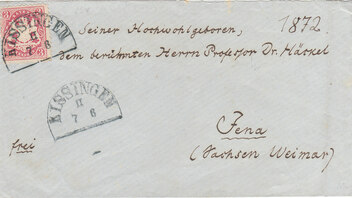 KISSINGEN
II
7 6
Seiner Hochwohlgeboren, 1872.
dem berühmten Herrn Professor Dr. Häckel
KISSINGEN
II
7 6
Jena
frei
(Sachsen Weimar)